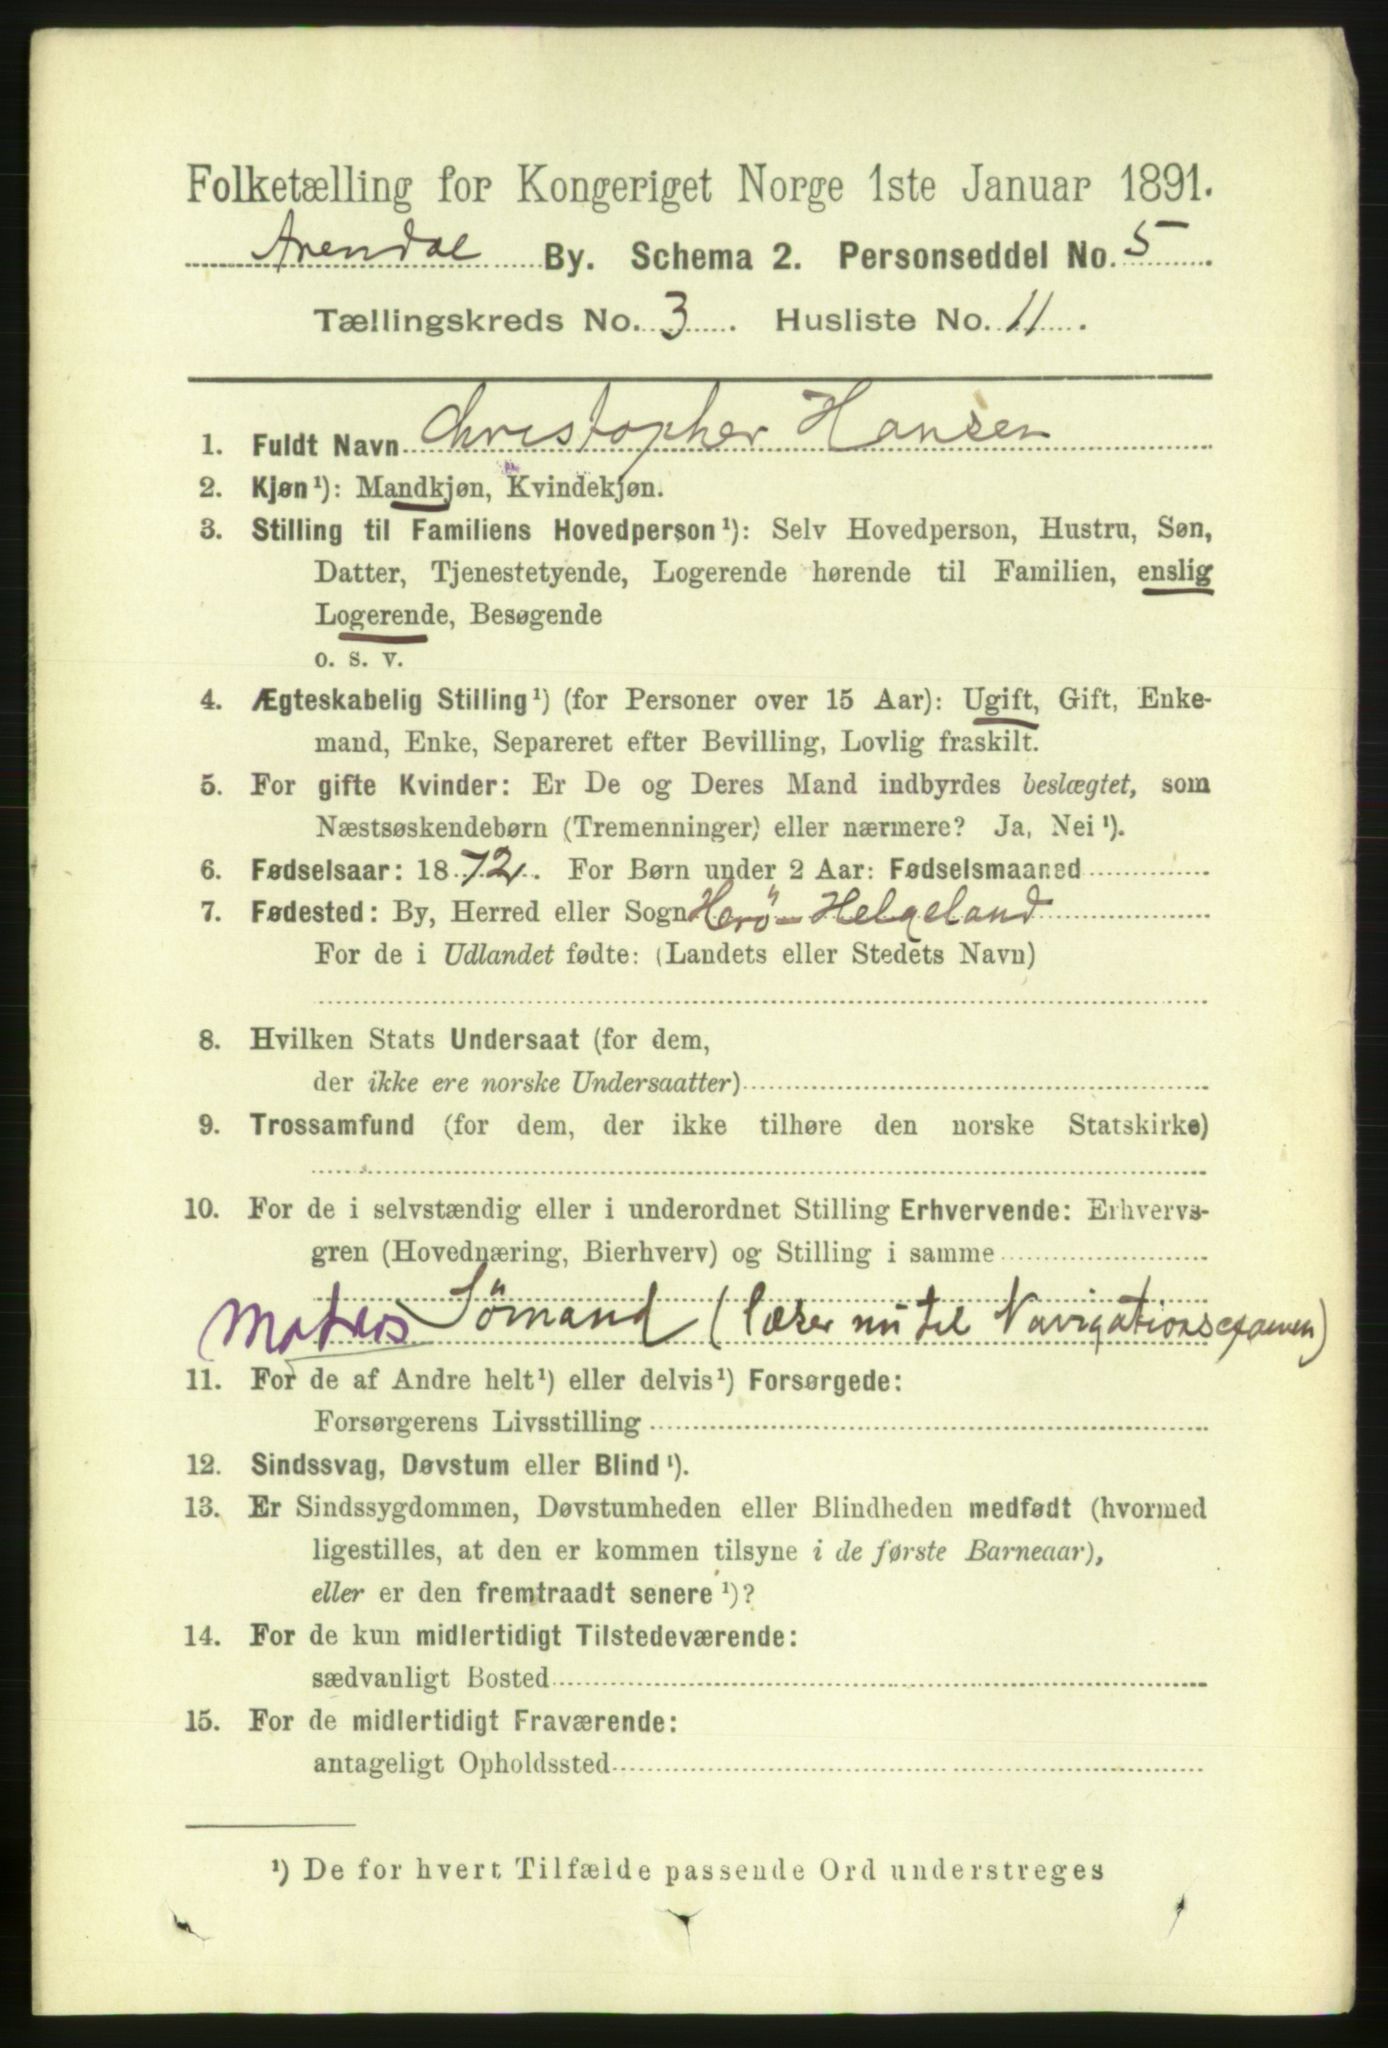 Folketælling for Kongeriget Norge 1ste Januar 1891.
Arendal By. Schema 2. Personseddel No. 5
Tællingskreds No. 3. Husliste No. 11.
1. Fuldt Navn Christopher Hansen
2. Kjøn¹): Mandkjøn, Kvindekjøn.
3. Stilling til Familiens Hovedperson¹): Selv Hovedperson, Hustru, Søn,
Datter, Tjenestetyende, Logerende hørende til Familien, enslig
Logerende, Besøgende
o. s. v.
4. Ægteskabelig Stilling¹) (for Personer over 15 Aar): Ugift, Gift, Enke-
mand, Enke, Separeret efter Bevilling, Lovlig fraskilt.
5. For gifte Kvinder: Er De og Deres Mand indbyrdes beslægtet, som
Næstsøskendebørn (Tremenninger) eller nærmere? Ja, Nei¹).
6. Fødselsaar: 1872. For Børn under 2 Aar: Fødselsmaaned
7. Fødested: By, Herred eller Sogn Herö - Helgeland
For de i Udlandet fødte: (Landets eller Stedets Navn)
8. Hvilken Stats Undersaat (for dem,
der ikke ere norske Undersaatter)
9. Trossamfund (for dem, der ikke tilhøre den norske Statskirke)
10. For de i selvstændig eller i underordnet Stilling Erhvervende: Erhvervs-
gren (Hovednæring, Bierhverv) og Stilling i samme
Matros Sömand (læser nu til Navigationsexamen)
11. For de af Andre helt¹) eller delvis¹) Forsørgede:
Forsørgerens Livsstilling
12. Sindssvag, Døvstum eller Blind¹).
13. Er Sindssygdommen, Døvstumheden eller Blindheden medfødt (hvormed
ligestilles, at den er kommen tilsyne i de første Barneaar),
eller er den fremtraadt senere¹)?
14. For de kun midlertidigt Tilstedeværende:
sædvanligt Bosted
15. For de midlertidigt Fraværende:
antageligt Opholdssted
¹) De for hvert Tilfælde passende Ord understreges